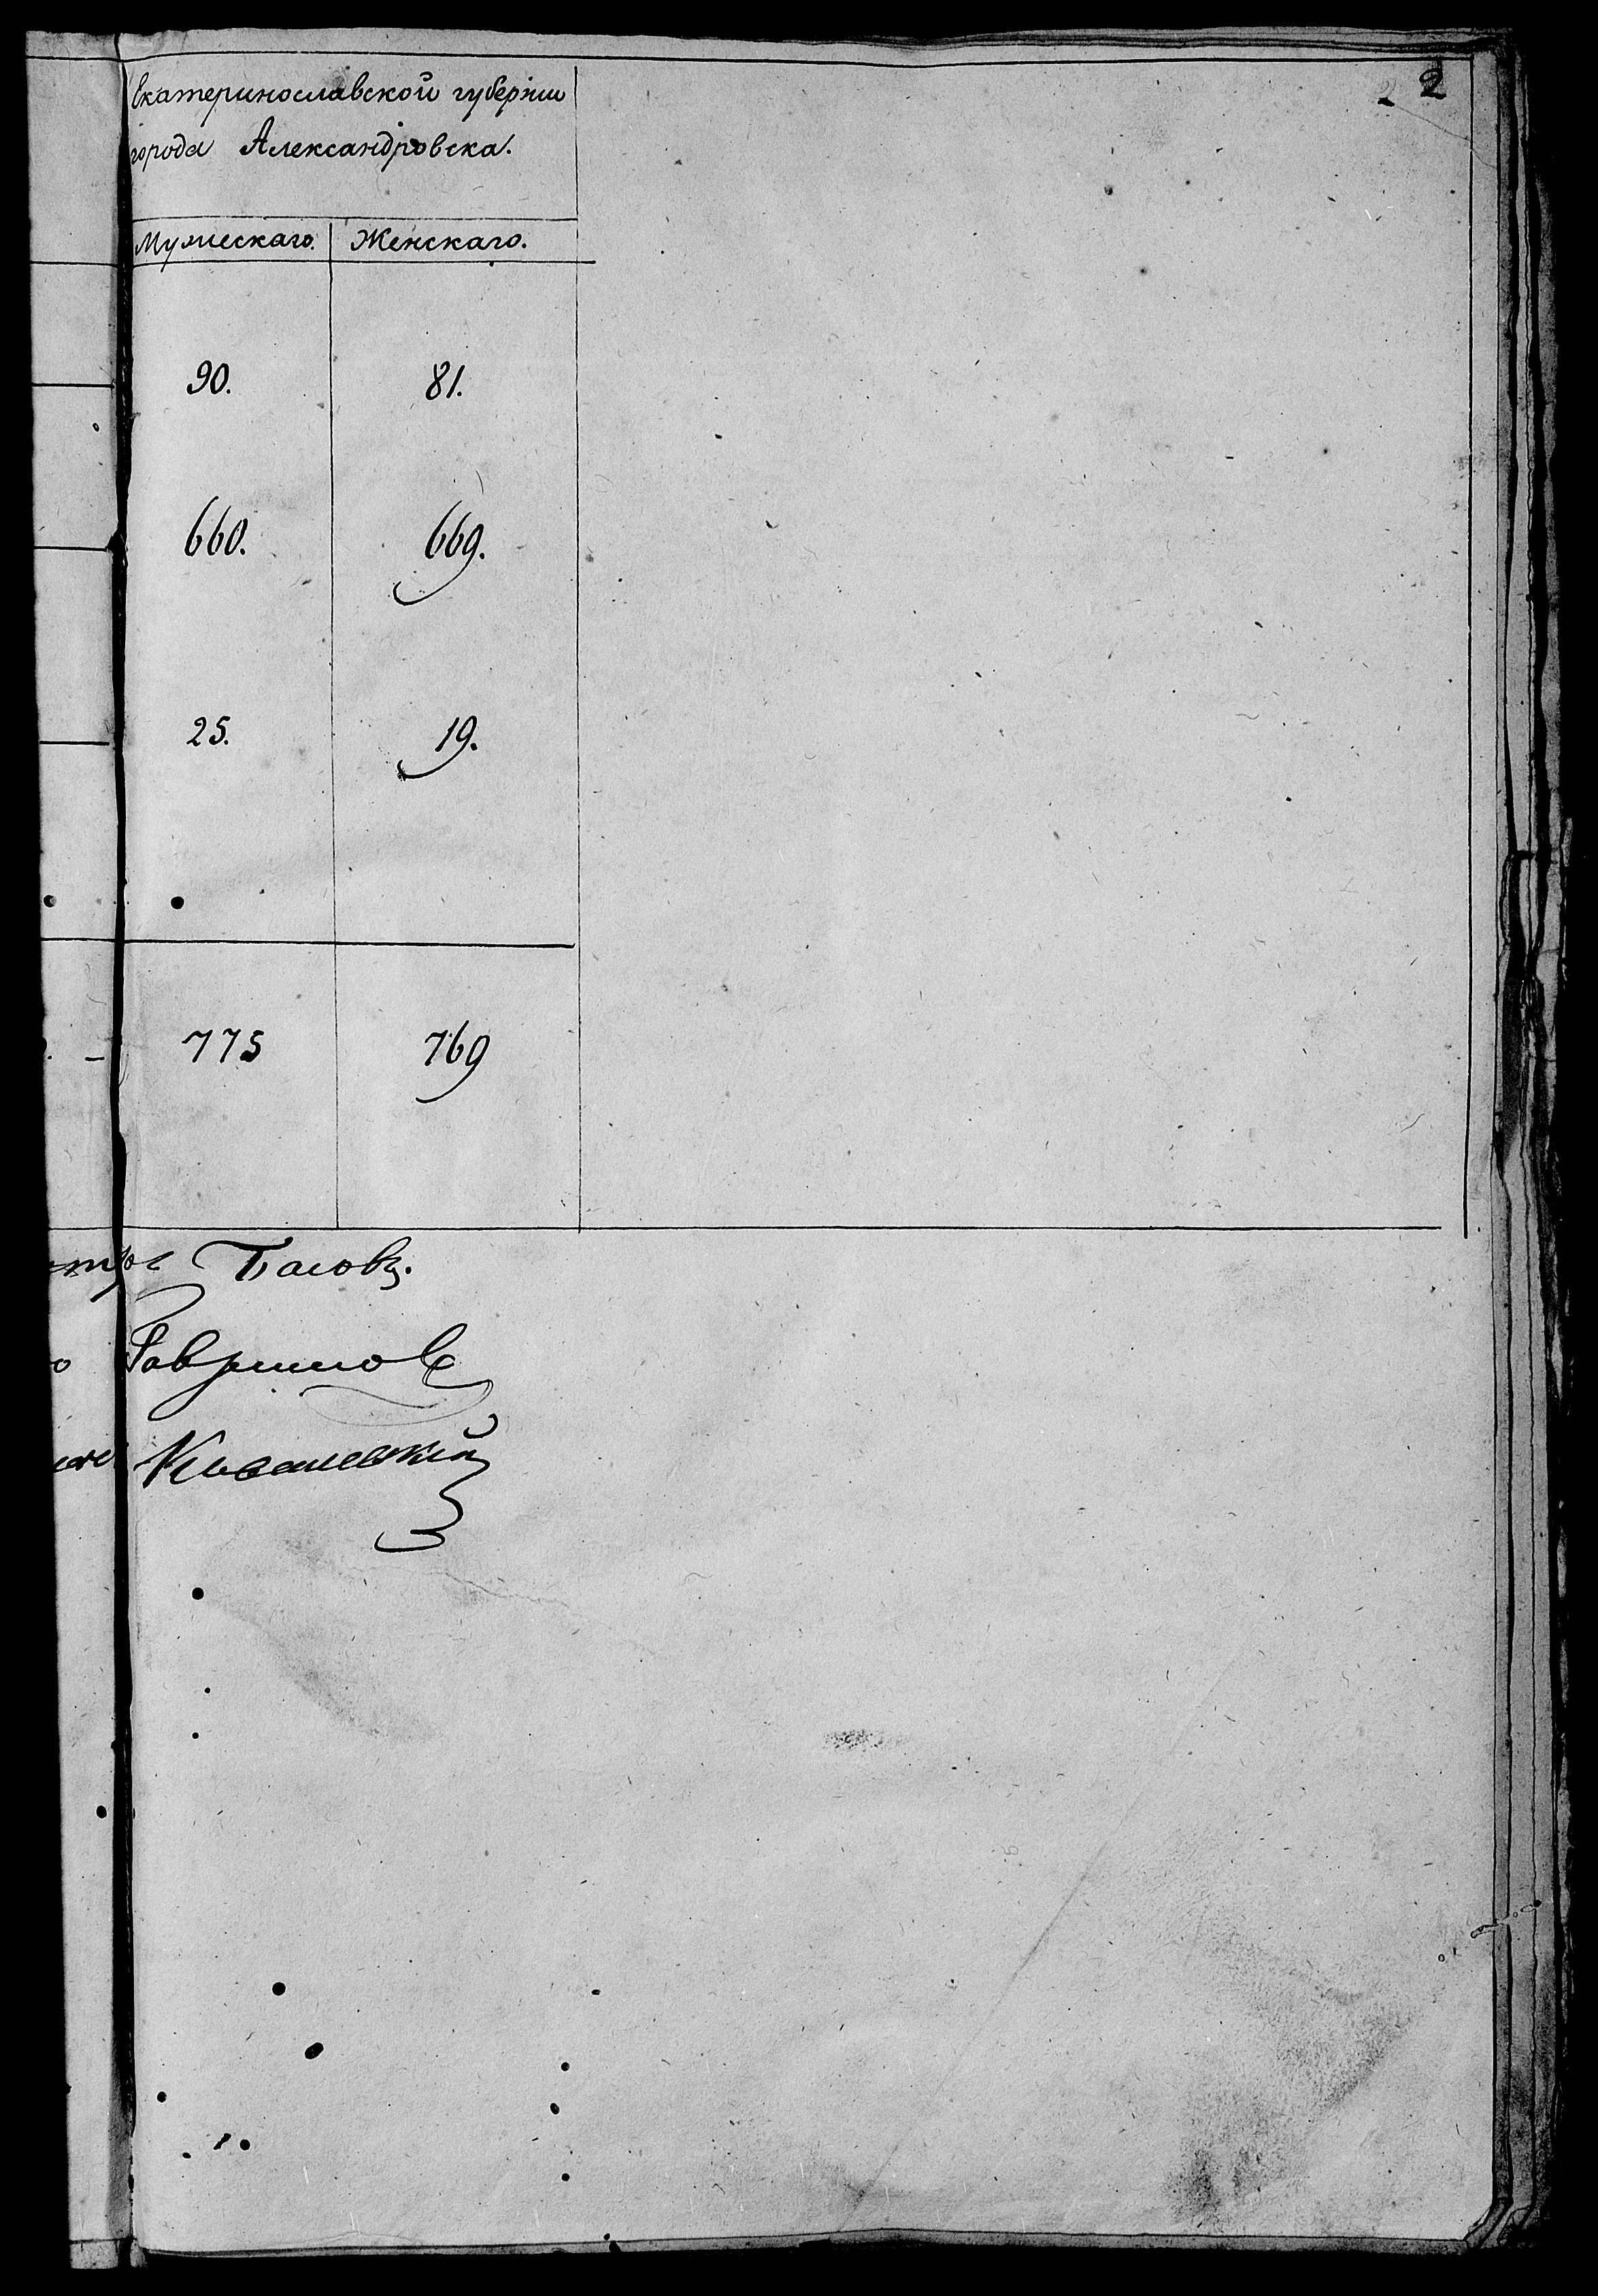 2 2
Екатеринославской губерніи
города Александровска.
Мужескаго. Женскаго.
90. 81.
660. 669.
25. 19.
775 769
Басовъ.
Гаврилов
Ковалевскій